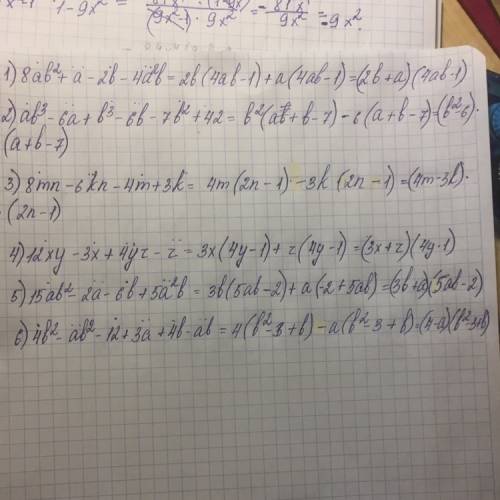 1 - 9x² = (9x²-1) · 9x² = - 9x² = -9x².
1) 8ab² + a - 2b - 4a²b = 2b(4ab-1) + a(4ab-1) = (2b+a)(4ab-1)
2) ab³ - 6a + b³ - 6b - 7b² + 42 = b²(ab+b-7) - 6(a+b-7) = (b²-6)·
(a+b-7)
3) 8mn - 6kn - 4m + 3k = 4m(2n-1) - 3k(2n-1) = (4m-3k)·
(2n-1)
4) 12xy - 3x + 4yz - z = 3x(4y-1) + z(4y-1) = (3x+z)(4y-1)
5) 15ab² - 2a - 6b + 5a²b = 3b(5ab-2) + a(-2+5ab) = (3b+a)(5ab-2)
6) 4b² - ab² - 12 + 3a + 4b - ab = 4(b²-3+b) - a(b²-3+b) = (4-a)(b²-3+b)